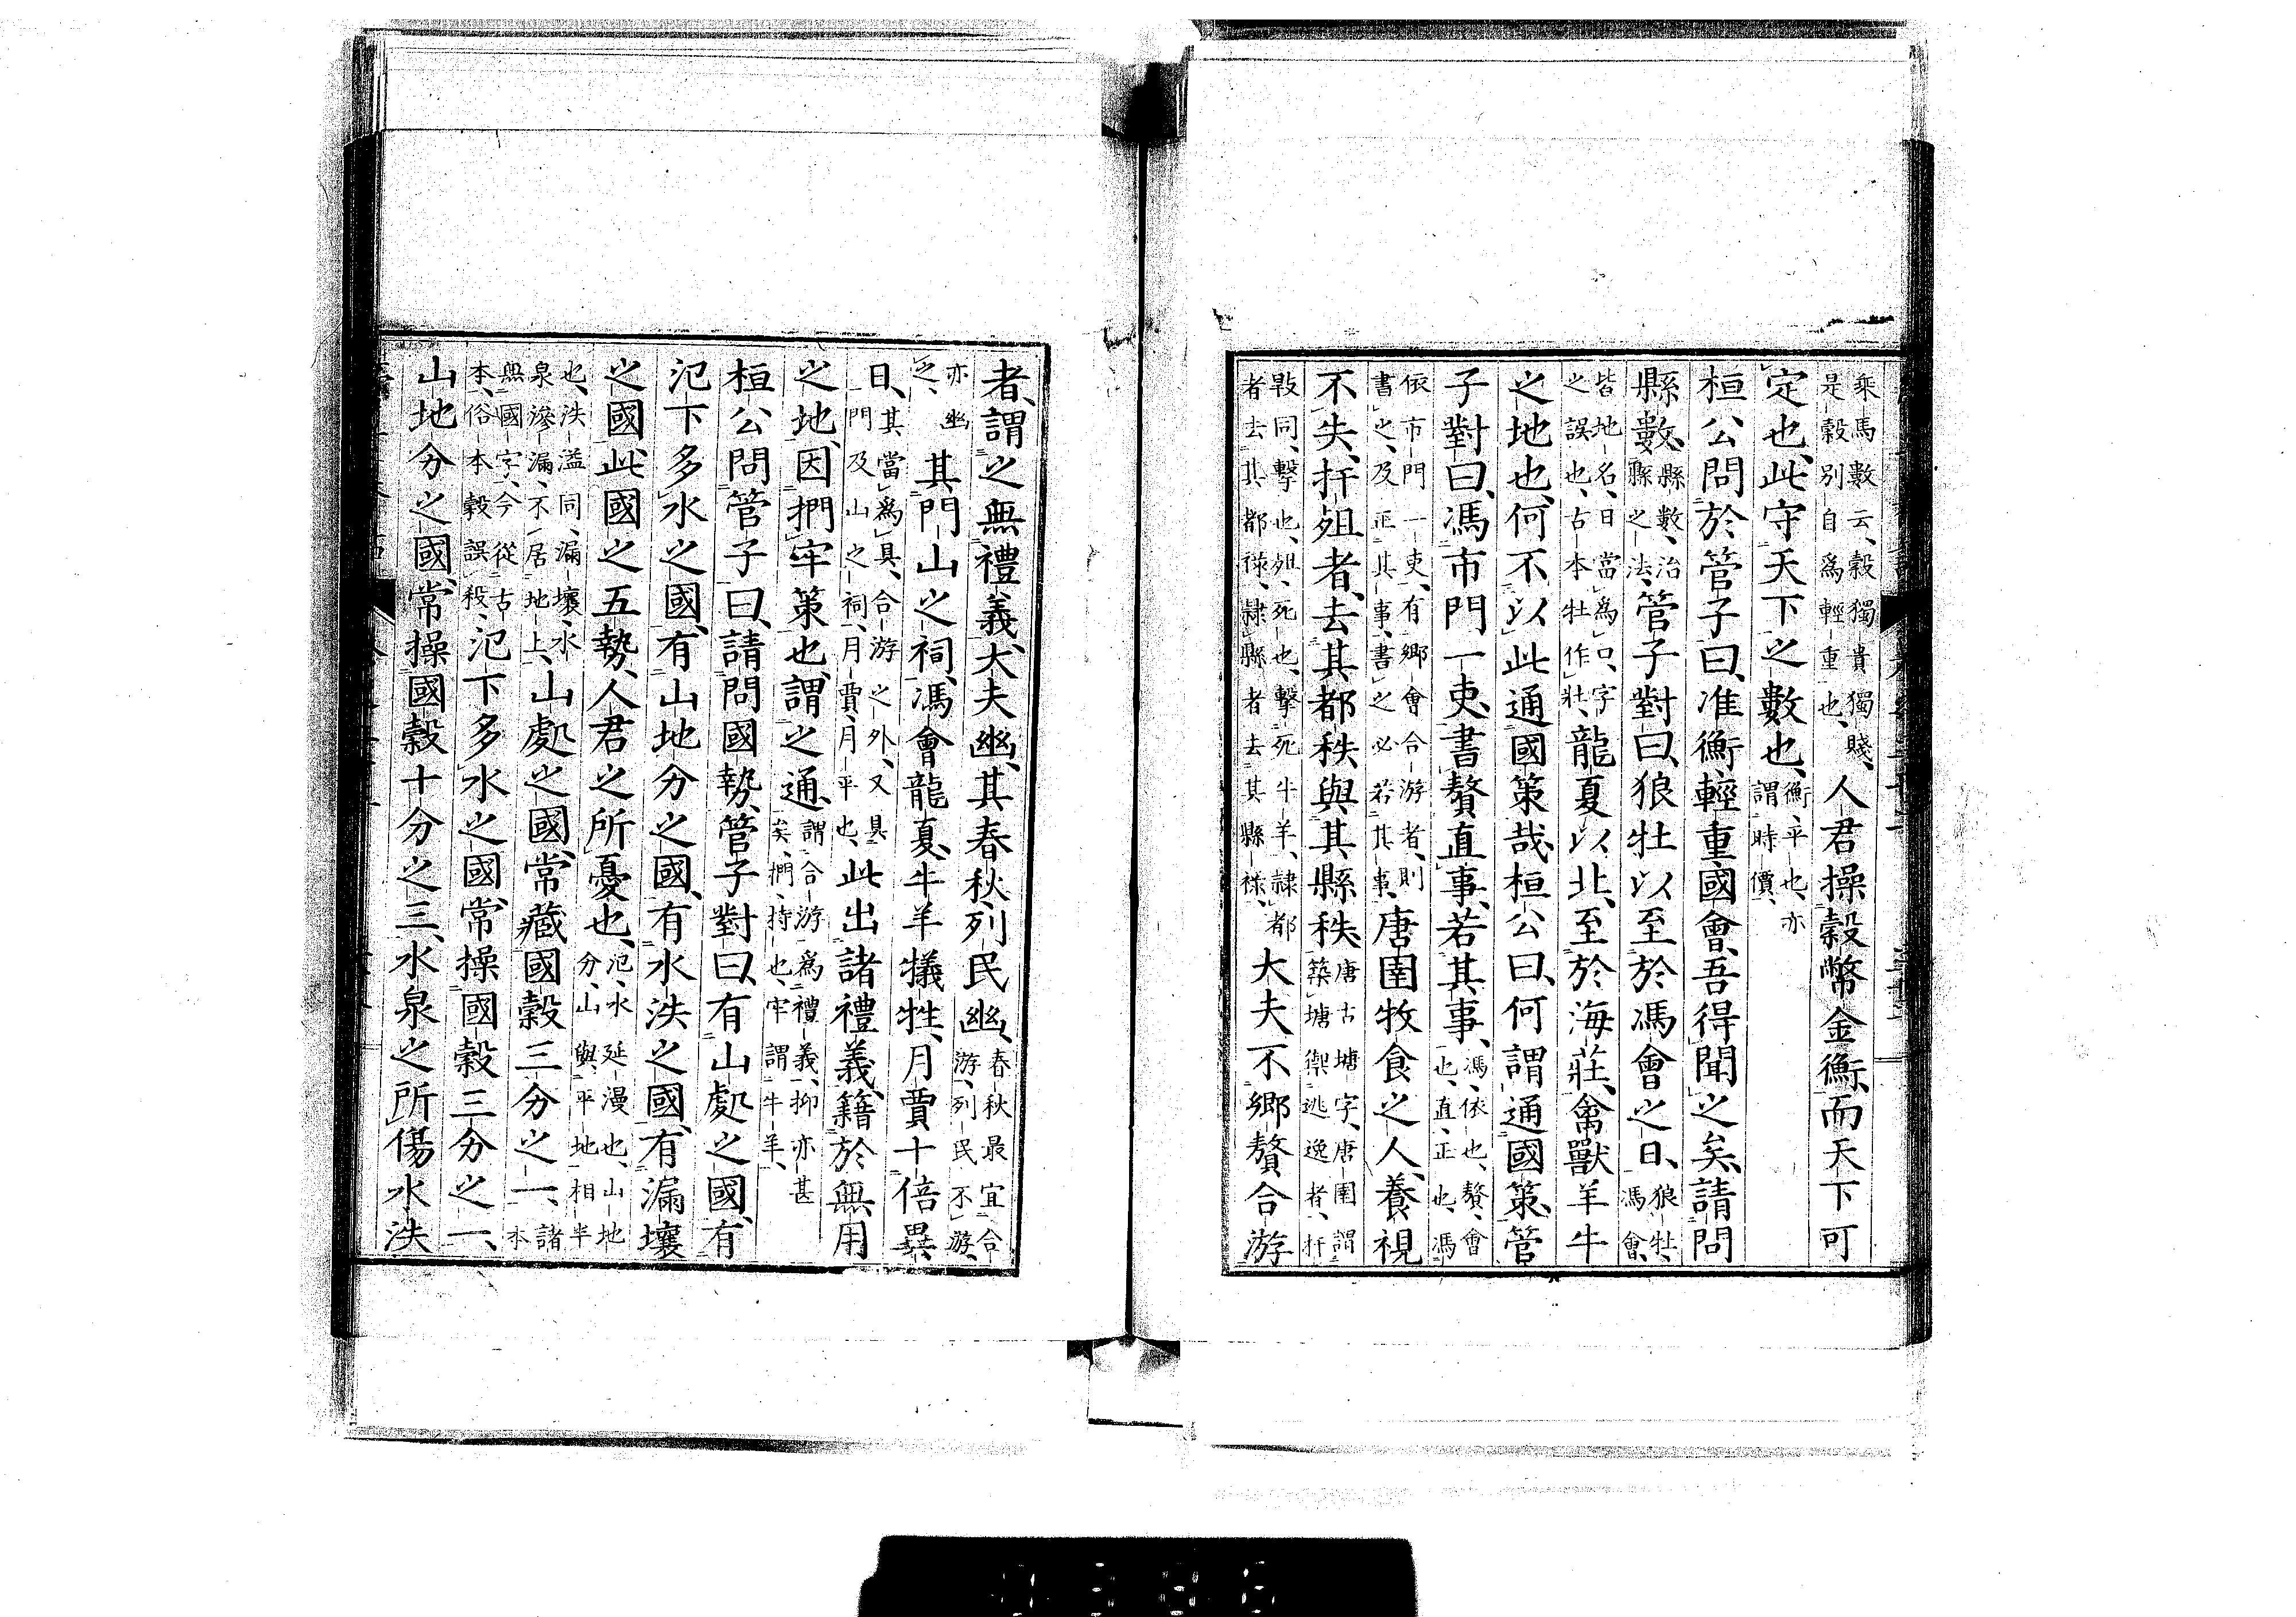 乘馬數云、穀獨貴獨賤、
是穀別自爲輕重也、人君操穀幣金衡、而天下可
定也、此守天下之數也、衡、平也、亦
謂時價、
桓公問於管子曰、准衡輕重國會、吾得聞之矣、請問
縣數、縣數、治
縣之法、管子對曰、狼牡以至於馮會之日、狼牡
馮會、
皆地名、日當爲口、字
之誤也、古本牡作壯、龍夏以北、至於海莊、禽獸羊牛
之地也、何不以此通國策哉、桓公曰、何謂通國策、管
子對曰、馮市門一吏、書贅直事、若其事、馮、依也、贅、會
也、直、正也、馮
依市門一吏、有鄉會合游者、則
書之、及正其事、書之必若其事、唐圉牧食之人、養視
不失、扞殂者、去其都秩、與其縣秩、唐古塘字、唐圉謂
築塘禦逃逸者、扞
毀同、擊也、殂、死也、擊死牛羊、隷都
者去其都祿、隷縣者去其縣祿、大夫不鄉贅合游
者、謂之無禮義、大夫幽、其春秋、列民幽、春秋最宜合
游、列民不游、
亦幽
之、其門山之祠、馮會龍夏、牛羊犧牲、月賈十倍異
日、其當爲具、合游之外、又具
門及山之祠、月賈、月平也、此出諸禮義、籍於無用
之地、因捫牢策也、謂之通、謂合游爲禮義、抑亦甚
矣、捫、持也、牢謂牛羊、
桓公問管子曰、請問國勢、管子對曰、有山處之國、有
氾下多水之國、有山地分之國、有水泆之國、有漏壤
之國、此國之五勢、人君之所憂也、氾、水延漫也、山地
分、山與平地相半
也、泆溢同、漏壤、水
泉滲漏、不居地上、山處之國、常藏國穀三分之一、諸
本
無國字、今從古
本、俗本穀誤殺、氾下多水之國、常操國穀三分之一、
山地分之國、常操國穀十分之三、水泉之所傷、水泆